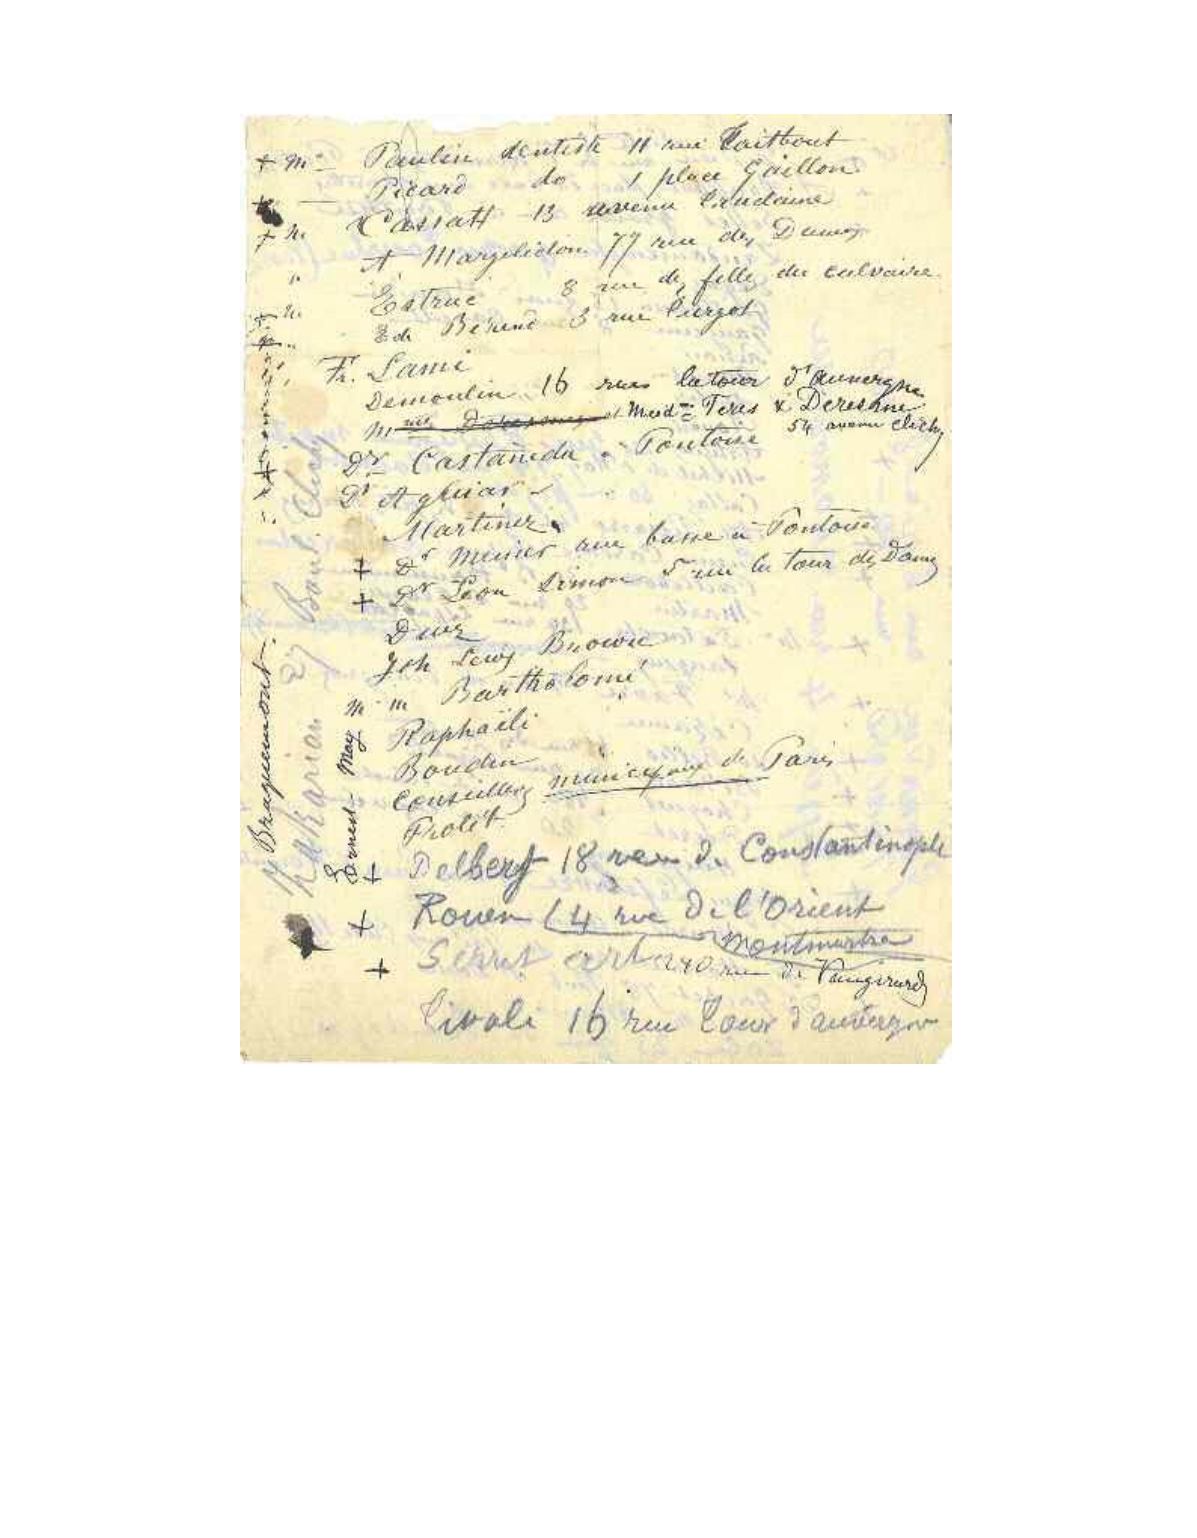 + M. Paulin dentiste 11 rue Taitbout
Picard do 1 place Gaillon
+ Cassatt 13 avenue Trudaine
A Margelidon 77 rue des Dames
" Estruc 8 rue des filles du calvaire
Ed. Berend 3 rue Turgot
Fr. Lami
Demoulin 16 rue la tour d'auvergne
Mme et Med= Teras & Deresme
54 avenue Clichy
Dr Castaneda Pontoise
Dr Aguiar
Martinez
+ Dr Meusier rue basse à Pontoise
+ Dr Leon Simon 5 rue la tour des Dames
Diez
Joh Lewis Browne
m Bartholomé
Raphaëli
Boudin
Conseillers municipaux de Paris
Frolet
+ 18 rue de Constantinople
+ Rouen 14 rue de l'Orient
Montmartre
+ Serret 240 rue de Vaugirard
Tivoli 16 rue Tour d'auvergne
Ernest May
Zakarian 27 Boul. Clichy
Braquemont